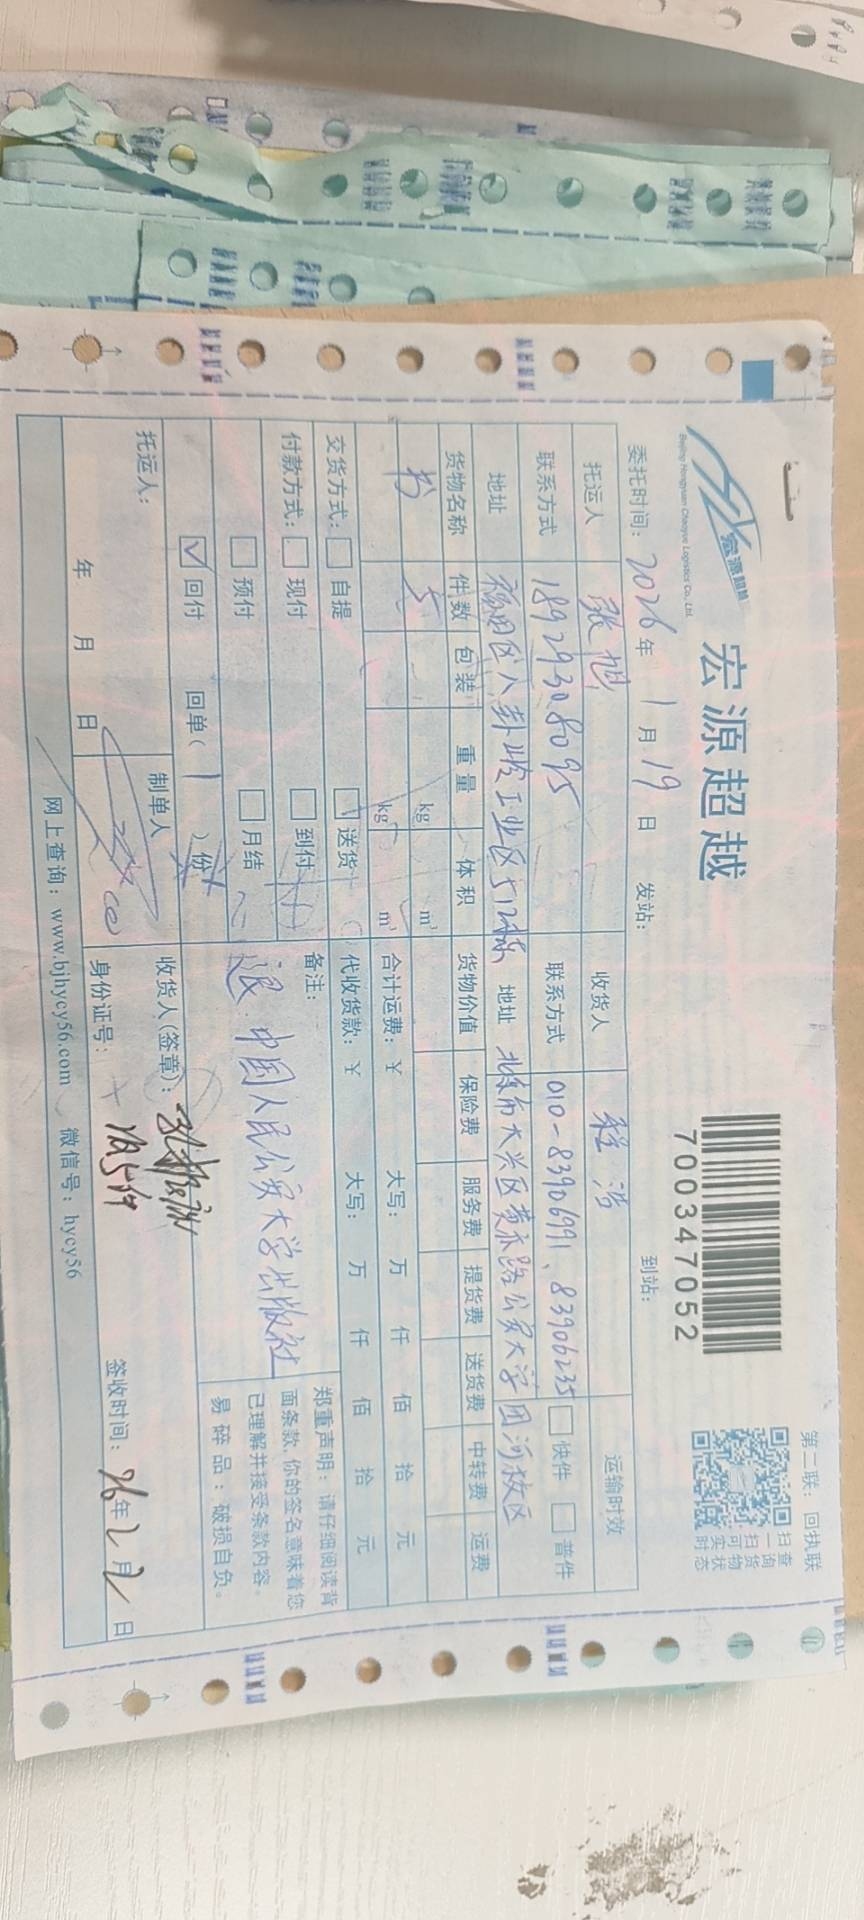 第二联：回执联
宏源超越
Beijing Hongyuan Chaoyue Logistics Co., Ltd.
宏源超越
700347052
扫一扫可实时
查询货物状态
委托时间：2026年1月19日 发站： 到站：
托运人 张旭 收货人 程浩 运输时效
联系方式 18929308095 联系方式 010-83906991、83906235 快件 普件
地址 福田区八卦岭工业区512栋 地址 北京市大兴区黄亦路公安大学团河校区
货物名称 件数 包装 重量 体积 货物价值 保险费 服务费 提货费 送货费 中转费 运费
书 5 kg m³
kg m³ 合计运费：￥ 大写： 万 仟 佰 拾 元
交货方式： 自提 送货 代收货款：￥ 大写： 万 仟 佰 拾 元
付款方式： 现付 到付 备注：
预付 月结 退 中国人民公安大学出版社
回付 回单（1）份
郑重声明：请仔细阅读背
面条款，你的签名意味着您
已理解并接受条款内容。
易碎品：破损自负。
托运人： 制单人 收货人(签章)：
年 月 日 身份证号： 签收时间：26年2月2日
网上查询：www.bjhycy56.com 微信号：hycy56